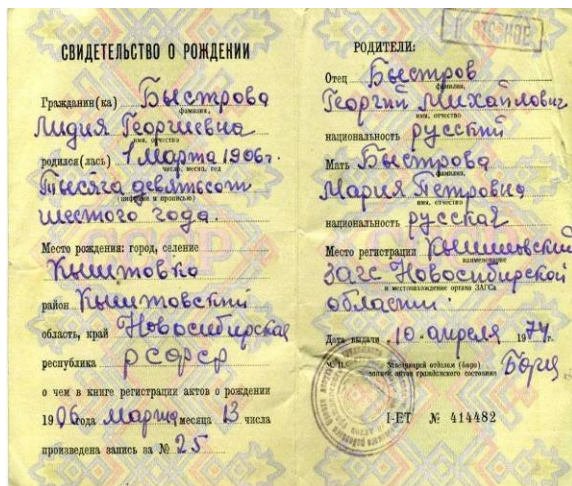 СВИДЕТЕЛЬСТВО О РОЖДЕНИИ
Гражданин(ка) Быстрова
фамилия,
Лидия Георгиевна
имя, отчество
родился(лась) 1 марта 1906 г.
число, месяц, год
Тысяча девятьсот
(цифрами и прописью)
шестого года.
Место рождения: город, селение
Кыштовка
район Кыштовский
область, край Новосибирская
республика РСФСР
о чем в книге регистрации актов о рождении
1906 года марта месяца 13 числа
произведена запись за № 25
РОДИТЕЛИ:
Отец Быстров
фамилия,
Георгий Михайлович
имя, отчество
национальность русский
Мать Быстрова
фамилия,
Мария Петровна
имя, отчество
национальность русская
Место регистрации Кыштовский
наименование
загс Новосибирской
и местонахождение органа ЗАГСа
области.
Дата выдачи "10" апреля 1974 г.
М. П. Заведующий отделом (бюро)
записи актов гражданского состояния
I-ЕТ № 414482